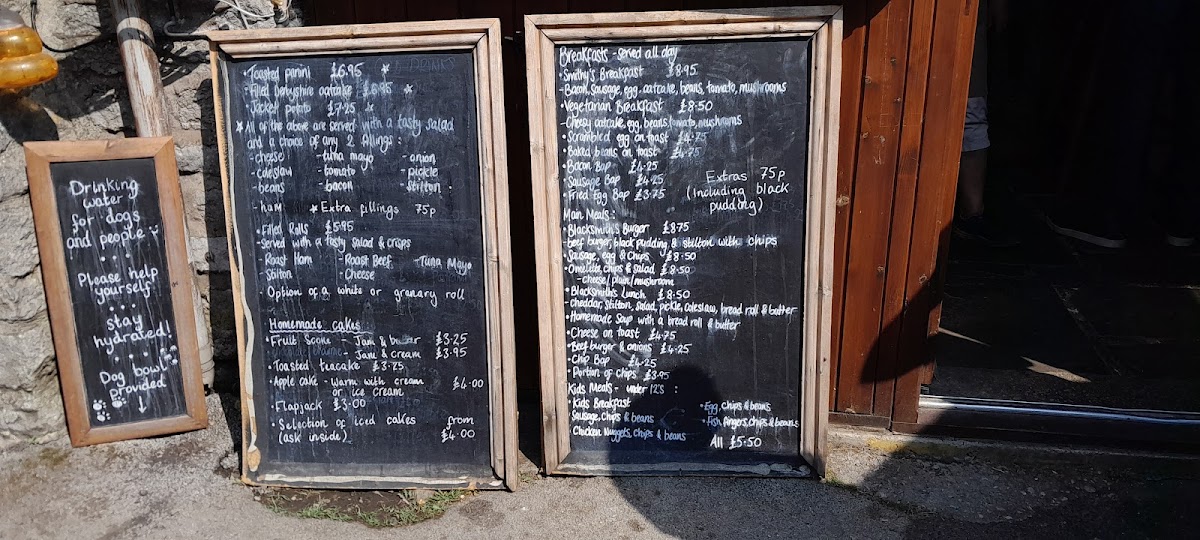 Drinking
water
for dogs
and people
Please help
yourself
stay
hydrated!
Dog bowl
provided
• Toasted panini £6.95 *
• Filled Derbyshire oatcake £6.95 *
• Jacket potato £7.25 *
* All of the above are served with a tasty salad
and a choice of any 2 fillings:
- cheese - tuna mayo - onion
- coleslaw - tomato - pickle
- beans - bacon - stilton
- ham * Extra fillings 75p
• Filled Rolls £5.95
- Served with a tasty salad & crisps
- Roast Ham - Roast Beef - Tuna Mayo
- Stilton - Cheese
Option of a white or granary roll
Homemade cakes
• Fruit Scone - Jam & butter £3.25
- Jam & cream £3.95
• Toasted teacake £3.25
• Apple cake - warm with cream £4.00
or ice cream
• Flapjack £3.00
• Selection of iced cakes from
(ask inside) £4.00
Breakfasts - served all day
• Smithy's Breakfast £8.95
- Bacon, Sausage, egg, oatcake, beans, tomato, mushrooms
• Vegetarian Breakfast £8.50
- Cheesy oatcake, egg, beans, tomato, mushrooms
• Scrambled egg on toast £4.75
• Baked beans on toast £4.75
• Bacon Bap £4.25
• Sausage Bap £4.25
• Fried Egg Bap £3.75
Extras 75p
(Including black
pudding)
Main Meals:
• Blacksmith's Burger £8.75
- beef burger, black pudding, & stilton with chips
• Sausage, egg & Chips £8.50
• Omelette, chips & salad £8.50
- cheese/plain/mushroom
• Blacksmith's Lunch £8.50
- cheddar, stilton, salad, pickle, coleslaw, bread roll & butter
• Homemade Soup with a bread roll & butter
• Cheese on toast £4.75
• Beef burger & onions £4.25
• Chip Bap £4.25
• Portion of Chips £3.95
Kids Meals - under 12's :
• Kids Breakfast • Egg, chips & beans
• Sausage, Chips & beans • Fish fingers, chips & beans
• Chicken Nuggets, chips & beans All £5.50